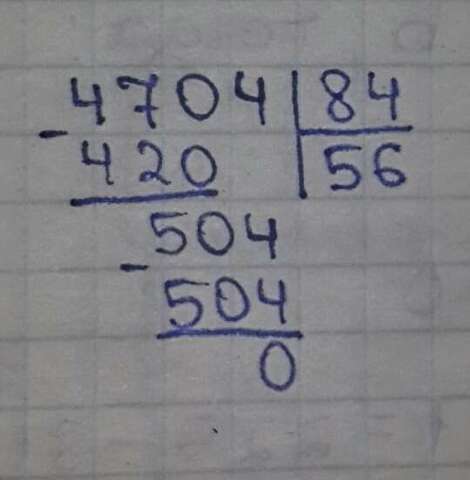 4704 | 84
- 420 | 56
504
- 504
0